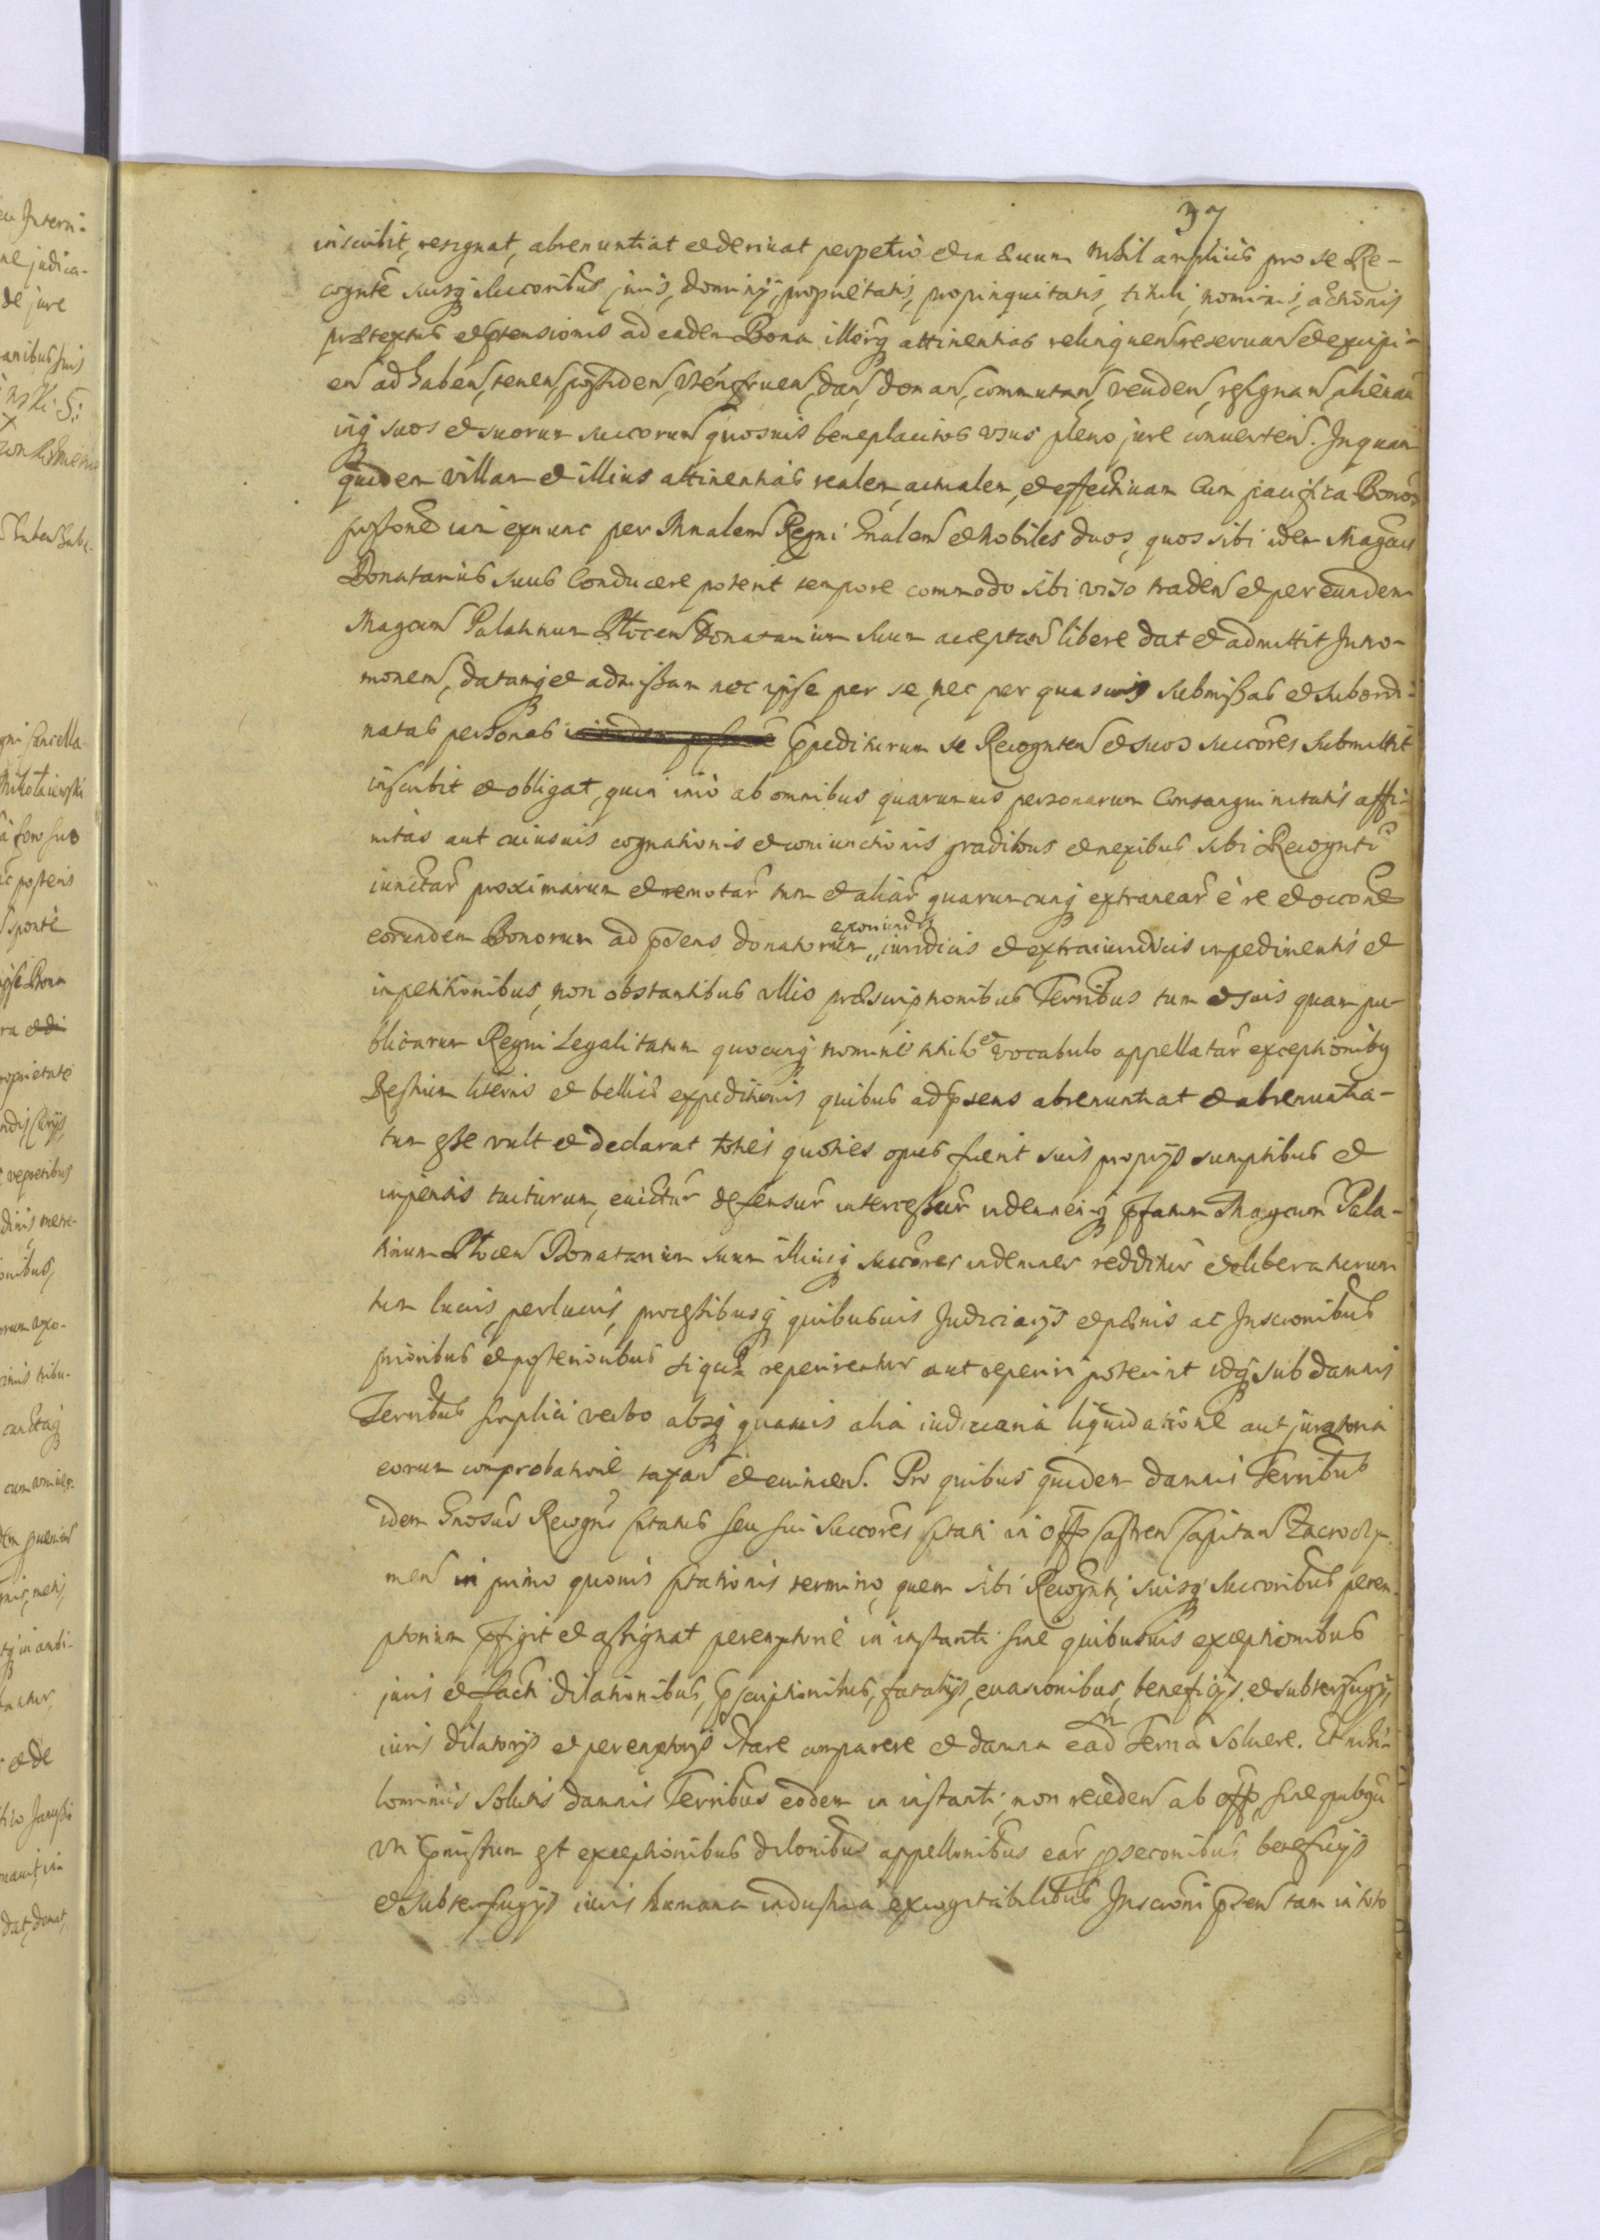 37
inscribit, resignat, abrenuntiat et derivat perpetuò et in Ævum Nihil ampliùs pro se Re-
cognte suisq̃ Succoribus juris, Dominij, proprietatis, propinquitatis, tituli, nominis, actionis
prætextus et p̃tensionis ad eadem Bona illorq̃ attinentias relinquen reservan et excipi-
en ad haben, tenen, possiden, utenfruen, dan, donan, commutan, venden, resignan, alienan
inq̃ suos et suorum succorum quosvis beneplacitos usus pleno jure converten. In quam
quidem villam et illius attinentias realem, actualem, et effectivam cum pacifica Bonor
possone iam ex nunc per Mnalem Regni Gnalem et Nobiles duos, quos sibi idem Magcus
Donatarius suus Conducere poterit tempore commodo sibi viso traden et per eundem
Magcum Palatinum Plocen Donatarium Suum acceptan libere dat et admittit Intro-
monem, datamq̃ et admissam nec ipse per se, nec per quasvis submissas et subordi-
natas personas expediturum se Recognten et suos succores Submittit
inscribit et obligat, quin imò ab omnibus quarumvis personarum Consanguinitatis affi-
nitas aut cuiusvis cognationis et coniunctionis gradibus et nexibus sibi Recognti
iunctar proximarum et remotar tum et aliar quarumcunq̃ extranear è re et occone
eorundem Bonorum ad p̃sens donatorum exoriundis iuridicis et extraiuridicis impedimentis et
impetitionibus, non obstantibus ullis præscriptionibus Terribus tum et suis quam pu-
blicarum Regni Legalitatum quocunq̃ nomine titulo et vocabulo appellatar exceptionibq
Restium literis et bellicis expeditionis quibus ad p̃sens abrenuntiat et abrenuntia-
tum esse vult et declarat toties quoties opus fuerit suis proprijs sumptibus et
impensis tuiturum, evictur defensur intercessur indemnemq̃ p̃fatum Magcum Pala-
tinum Plocen Donatarium suum illiusq̃ succores indemnes redditur et liberaturum
tum lucris, perlucris, processibusq̃ quibusvis Judiciarijs et pænis ac Inscronibus
prioribus et posterioribus siqua reperirentur aut reperiri poterint idq̃ sub damnis
Terribus simplici verbo absq̃ quavis alia iudiciaria liquidatione aut juratoria
eorum comprobatione taxan et evincen. Pro quibus quidem damnis Terribus
idem Gnosus Recogns citatus seu sui Succores citati in Offo Castren Capitan Zacroczy-
men in primo quovis citationis termino, quem sibi Recognti, suisq̃ Succoribus perem-
ptorium p̃figit et assignat peremptorie in instanti sine quibusvis exceptionibus
juris et facti dilationibus, p̃scriptionibus, fatalijs, evasionibus, beneficijs et subterfugijs
iuris dilatorijs et peremptorijs stare comparere et damna ead m Terra solvere. Et nihi-
lominus solutis damnis Terribus eodem in instanti, non receden ab offo, sine quibqũ
uti p̃missum est exceptionibus dilonibus appellonibus ear p̃seconibus beneficijs
et subterfugijs iuris humana industria excogitabilibus Inscroni p̃sen tam in toto